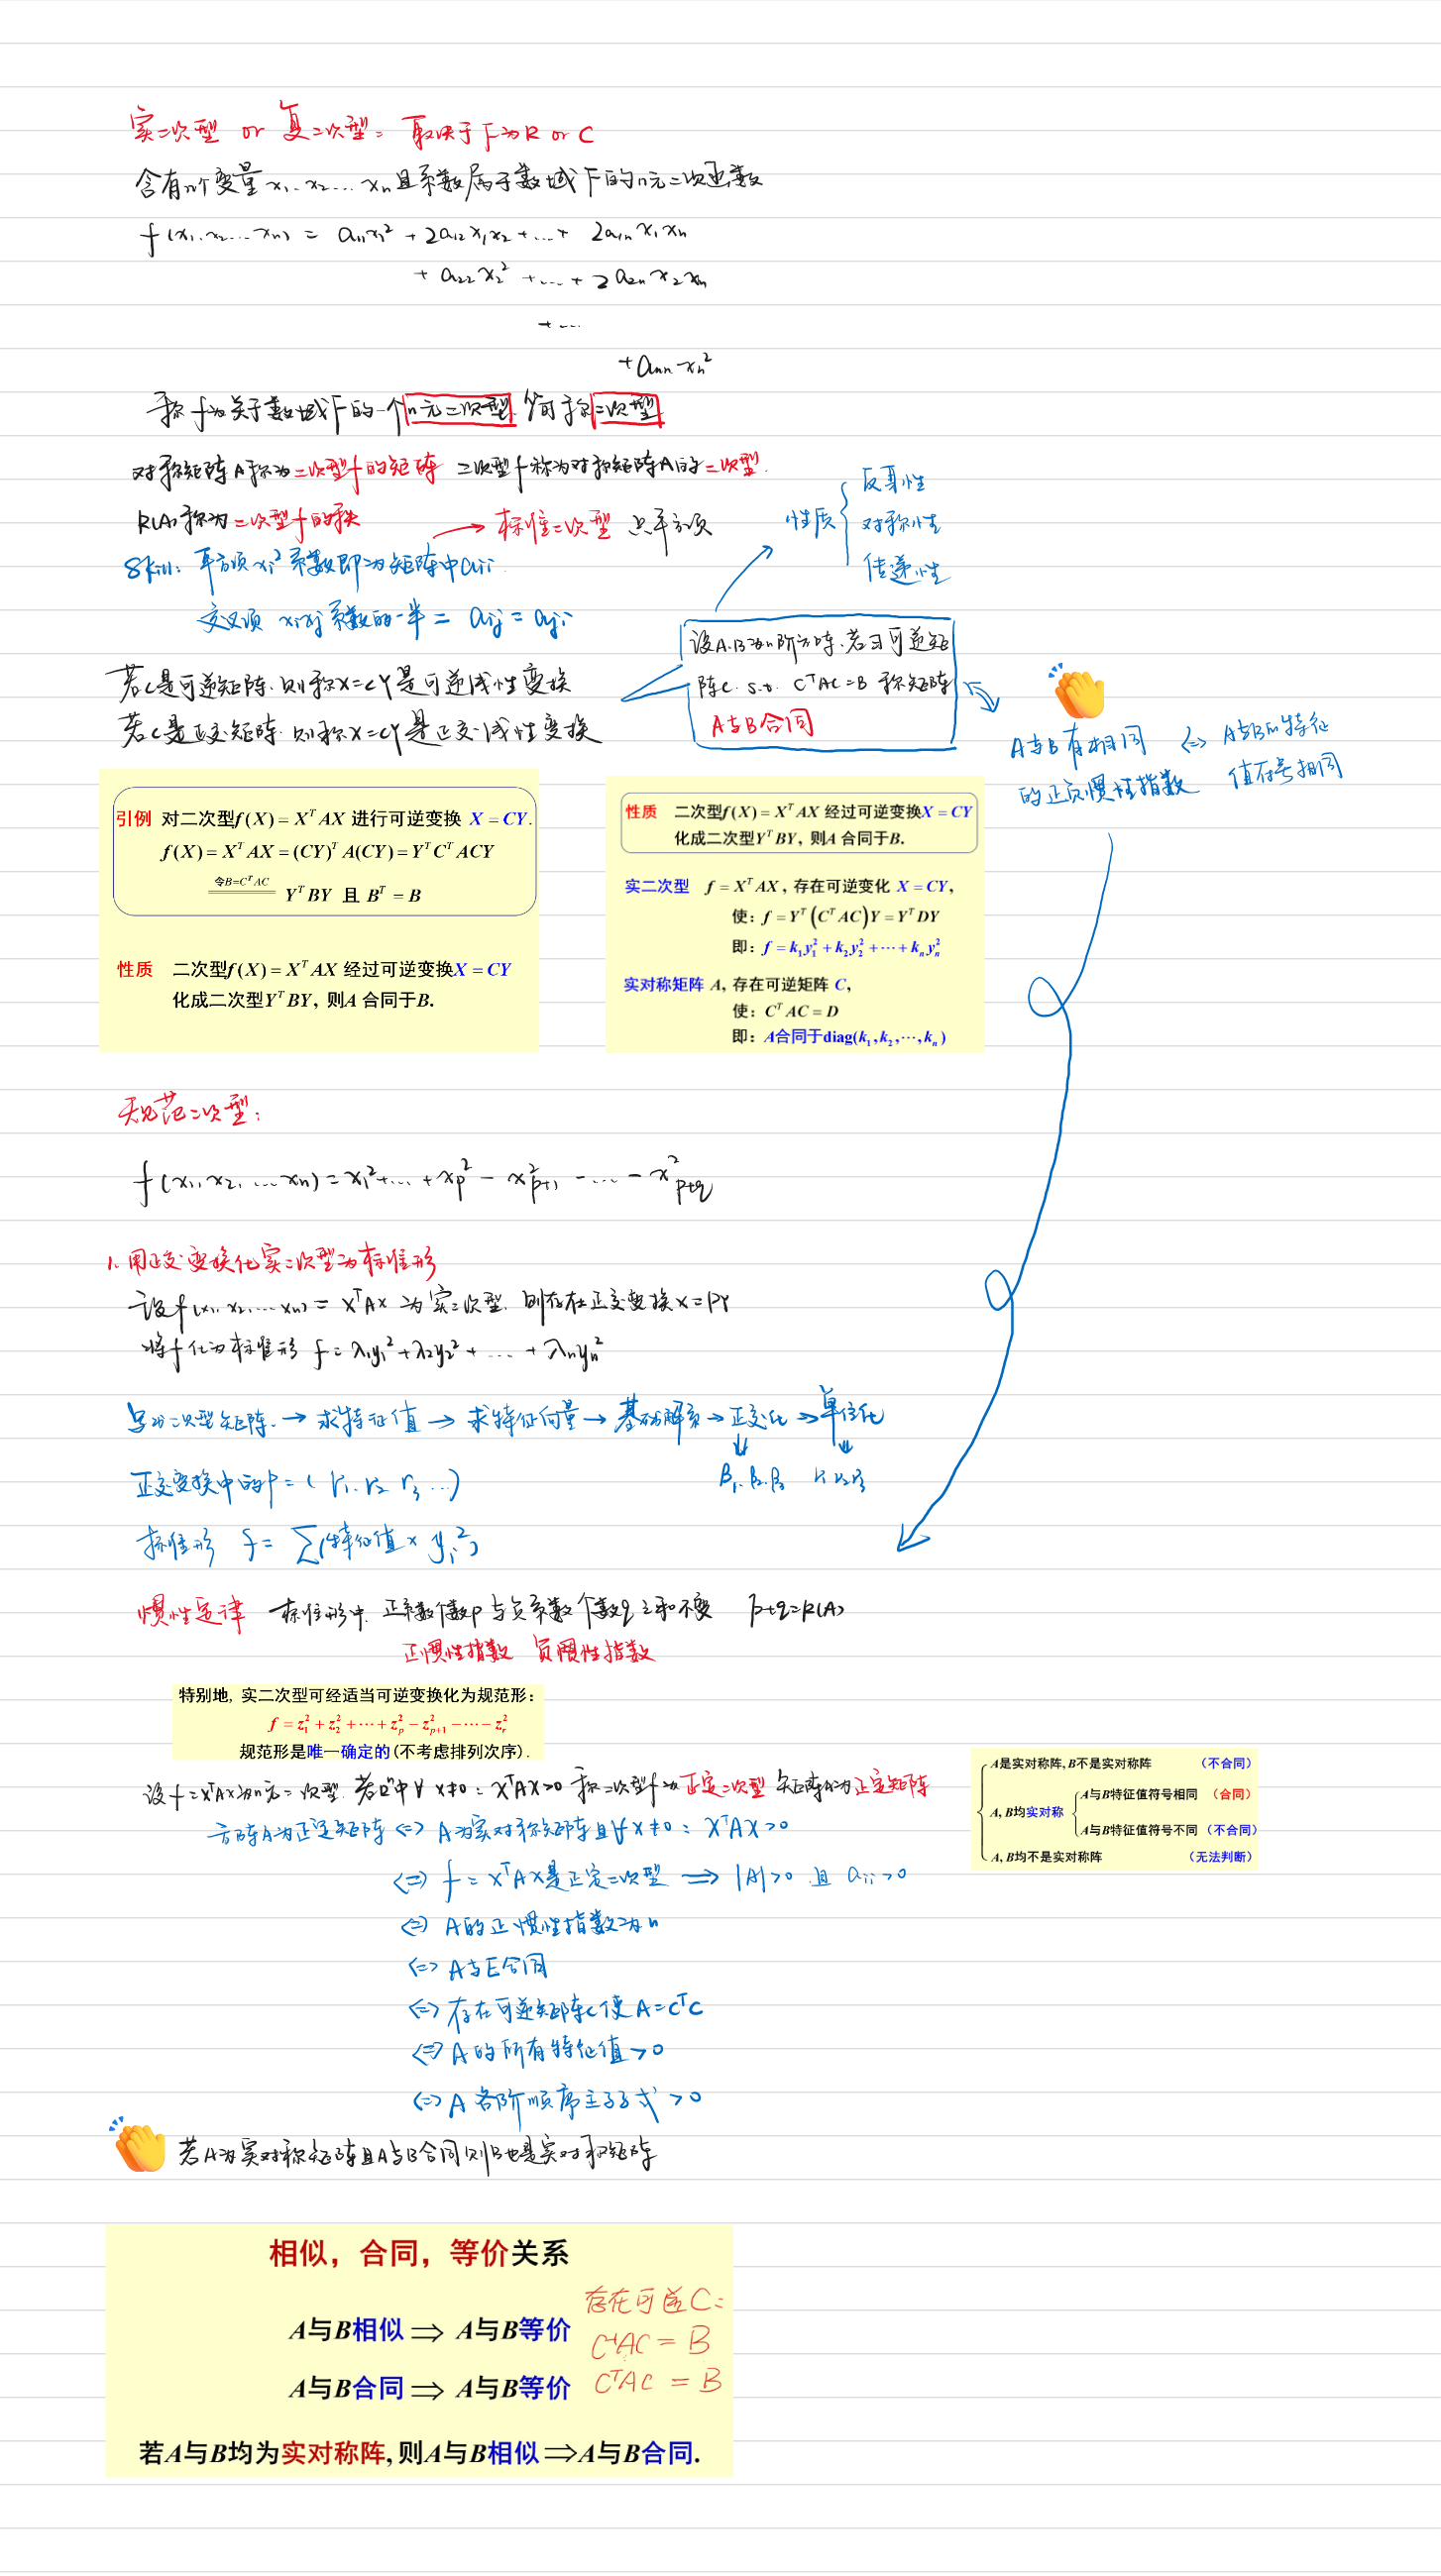 实二次型 or 复二次型: 取决于F为R or C
含有n个变量x₁、x₂…xₙ且系数属于数域F的n元二次函数
f(x₁,x₂…xₙ) = a₁₁x₁² + 2a₁₂x₁x₂ + … + 2a₁ₙx₁xₙ
+ a₂₂x₂² + … + 2a₂ₙx₂xₙ
+ …
+ aₙₙxₙ²
称f为关于数域F的一个n元二次型.简称二次型
对称矩阵A称为二次型f的矩阵 二次型f称为对称矩阵A的二次型.
R(A)称为二次型f的秩
→ 标准二次型 只平方项
Skill: 平方项xᵢ²系数即为矩阵中aᵢᵢ
交叉项xᵢxⱼ系数的一半 = aᵢⱼ = aⱼᵢ
性质
反身性
对称性
传递性
若C是可逆矩阵.则称X=CY是可逆线性变换
若C是正交矩阵.则称X=CY是正交线性变换
设A.B为n阶方阵.若∃可逆矩
阵C. s.t. CᵀAC=B 称矩阵
A与B合同
A与B有相同 <=> A与B的特征
的正负惯性指数 值符号相同
引例 对二次型f(X)=XᵀAX 进行可逆变换 X=CY.
f(X)=XᵀAX=(CY)ᵀA(CY)=YᵀCᵀACY
令B=CᵀAC
YᵀBY 且 Bᵀ=B
性质 二次型f(X)=XᵀAX 经过可逆变换X=CY
化成二次型YᵀBY, 则A 合同于B.
性质 二次型f(X)=XᵀAX 经过可逆变换X=CY
化成二次型YᵀBY, 则A 合同于B.
实二次型 f=XᵀAX, 存在可逆变化 X=CY,
使: f=Yᵀ(CᵀAC)Y=YᵀDY
即: f=k₁y₁²+k₂y₂²+⋯+kₙyₙ²
实对称矩阵 A, 存在可逆矩阵 C,
使: CᵀAC=D
即: A合同于diag(k₁,k₂,⋯,kₙ)
规范二次型:
f(x₁,x₂,…xₙ) = x₁²+…+xₚ² − x²ₚ₊₁ − … − x²ₚ₊q
1. 用正交变换化实二次型为标准形
设f(x₁,x₂,…xₙ) = XᵀAX 为实二次型.则存在正交变换X=PY
将f化为标准形 f=λ₁y₁²+λ₂y₂²+…+λₙyₙ²
写出二次型矩阵.→求特征值→求特征向量→基础解系→正交化→单位化
β₁.β₂.β₃ r₁ r₂ r₃
正交变换中的P=(r₁.r₂ r₃…)
标准形 f=∑(特征值×yᵢ²)
惯性定律 标准形中.正系数个数p与负系数个数q之和不变 p+q=R(A)
正惯性指数 负惯性指数
特别地, 实二次型可经适当可逆变换化为规范形:
f=z₁²+z₂²+⋯+zₚ²−z²ₚ₊₁−⋯−zᵣ²
规范形是唯一确定的(不考虑排列次序).
设f=XᵀAX为n元二次型.若Rⁿ中∀ x≠0: XᵀAX>0 称二次型f为正定二次型 矩阵A为正定矩阵
方阵A为正定矩阵 <=> A为实对称矩阵且∀x≠0: XᵀAX>0
<=> f=XᵀAX是正定二次型 => |A|>0 且 aᵢᵢ>0
<=> A的正惯性指数为n
<=> A与E合同
<=> 存在可逆矩阵C使A=CᵀC
<=> A的所有特征值>0
<=> A各阶顺序主子式>0
A是实对称阵,B不是实对称阵 (不合同)
A, B均实对称
A与B特征值符号相同 (合同)
A与B特征值符号不同 (不合同)
A, B均不是实对称阵 (无法判断)
若A为实对称矩阵且A与B合同则B也是实对称矩阵
相似，合同，等价关系
存在可逆C:
A与B相似 ⇒ A与B等价
C⁻¹AC = B
A与B合同 ⇒ A与B等价
CᵀAC = B
若A与B均为实对称阵,则A与B相似⇒A与B合同.